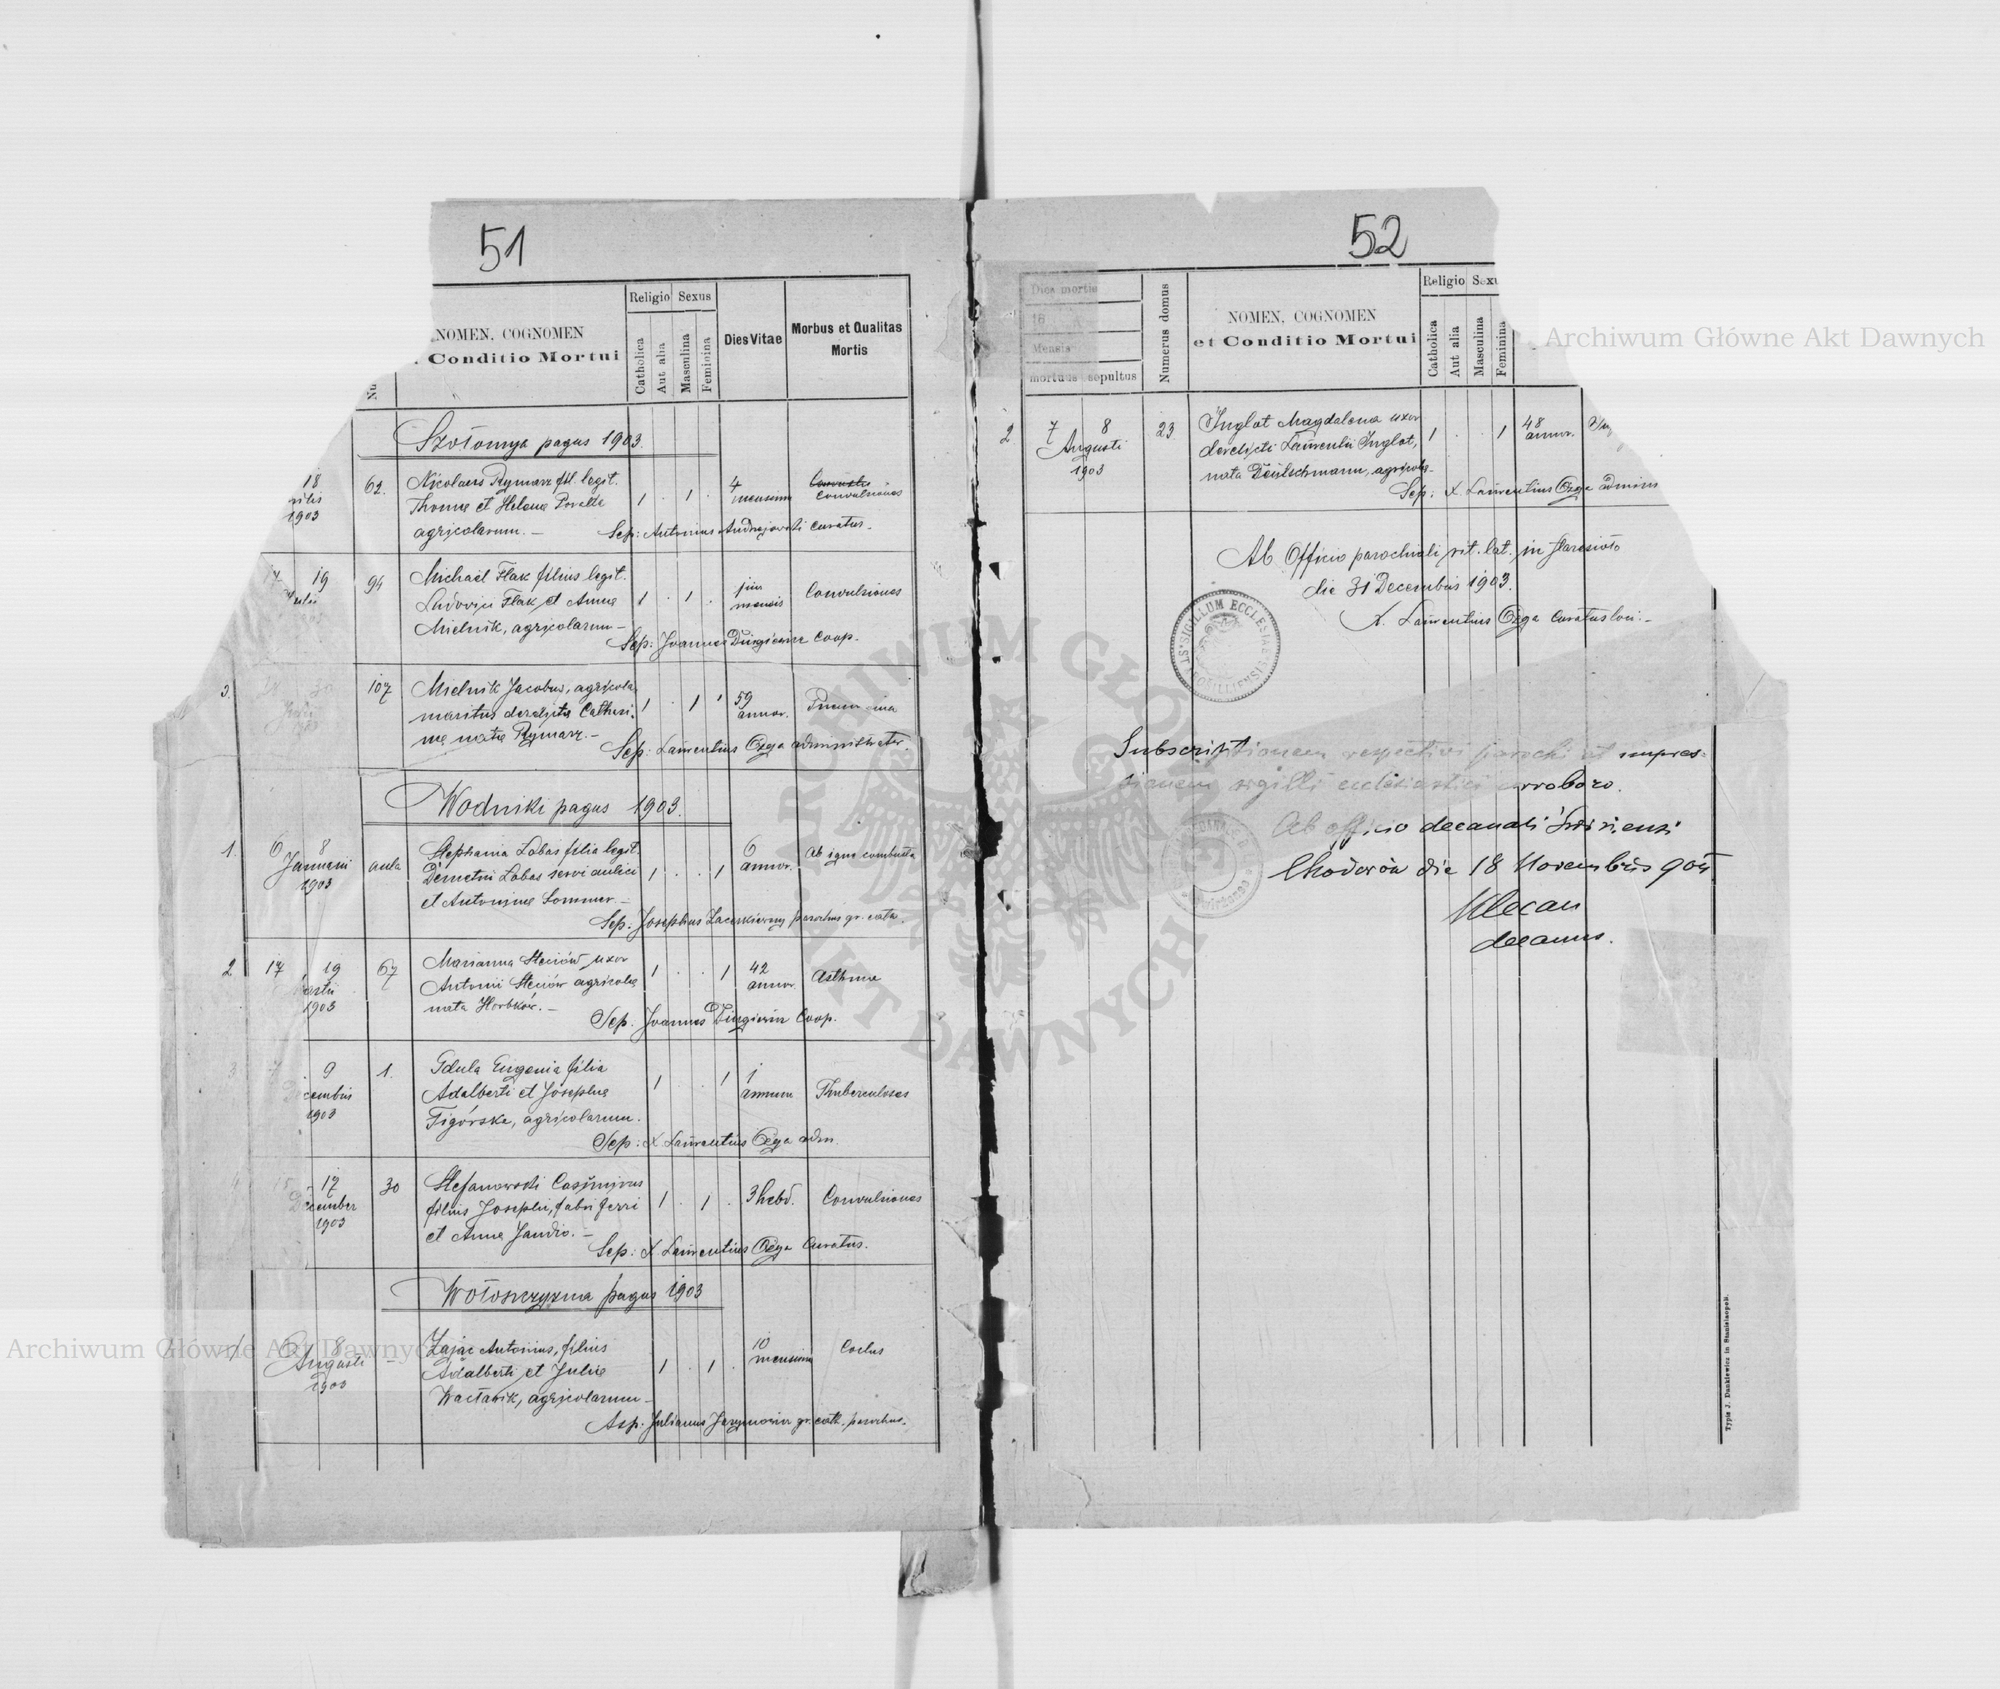 51
NOMEN, COGNOMEN
Conditio Mortui
Religio
Sexus
Catholica
Aut alia
Masculina
Feminina
Dies Vitae
Morbus et Qualitas
Mortis
Szołomyja pagus 1903
18
1903
62.
Nicolaus Rymarz fil. legit.
Thomae et Helenae
agricolarum. —
1 . 1 .
4
mensium
Convulsiones
Sep: Antonius curatus.
19
94
Michael Flak filius legit.
Ludovici Flak et Annae
Mielnik, agricolarum —
1 . 1 .
mensis
Convulsiones
Sep: Joannes coop.
3.
107
Mielnik Jacobus, agricola,
maritus derelictae Catheri-
nae natae Rymarz. —
1 . 1
59
annor.
Sep: Laurentius Ozga administrator.
Wodniki pagus 1903.
1.
6 8
Januarii
1903
aula
Stephania Łabas filia legit.
Demetrii Łabas servi aulici
et Antoninae Sommer. —
1 . . 1
6
annor.
Ab igne combusta
Sep: Josephus parochus gr. cath.
2
17 19
1903
67
Marianna Steciów uxor
Antonii Steciów agricolae
nata Horbków. —
1 . . 1
42
annor.
Asthma
Sep. Joannes Coop.
3
9
1903
1.
Gdula Eugenia filia
Adalberti et Josephae
Figórska, agricolarum.
1 . . 1
1
annum
Thuberculoses
Sep: X Laurentius Ozga adm.
4
15 17
December
1903
30
Stefanowski Casimirus
filius Josephi, fabri ferri
et Annae
1 . 1 .
3 hebd.
Convulsiones
Sep: X Laurentius Ozga Curatus.
Wołoszczyzna pagus 1903
1
6 8
Augusti
1903
—
Zając Antonius, filius
Adalberti et Juliae
agricolarum —
1 . 1 .
10
mensium
Sep. Julianus gr. cath. parochus.
52
Dies mortis
Mensis
mortuus sepultus
Numerus domus
NOMEN, COGNOMEN
et Conditio Mortui
Religio
Catholica
Aut alia
Masculina
Feminina
2
7 8
Augusti
1903
23
Inglot Magdalena uxor
derelicti Laurentii Inglot,
nata Deutschmann, agricola
1 . . 1
48
annor.
Sep: X. Laurentius Ozga
Ab Officio parochiali rit. lat. in
die 31 Decembris 1903.
X. Laurentius Ozga Curatus loci. —
SIGILLUM
Subscriptionem respectivi parochi et impres-
sionem sigilli ecclesiastici corroboro.
Ab officio decanali
Chodorów die 18 Novembris 904
Klecan
decanus.
Typis J. Dankiewicz in Stanislaopoli.
Archiwum Główne Akt Dawnych
Archiwum Główne Akt Dawnych
ARCHIWUM GŁÓWNE
AKT DAWNYCH